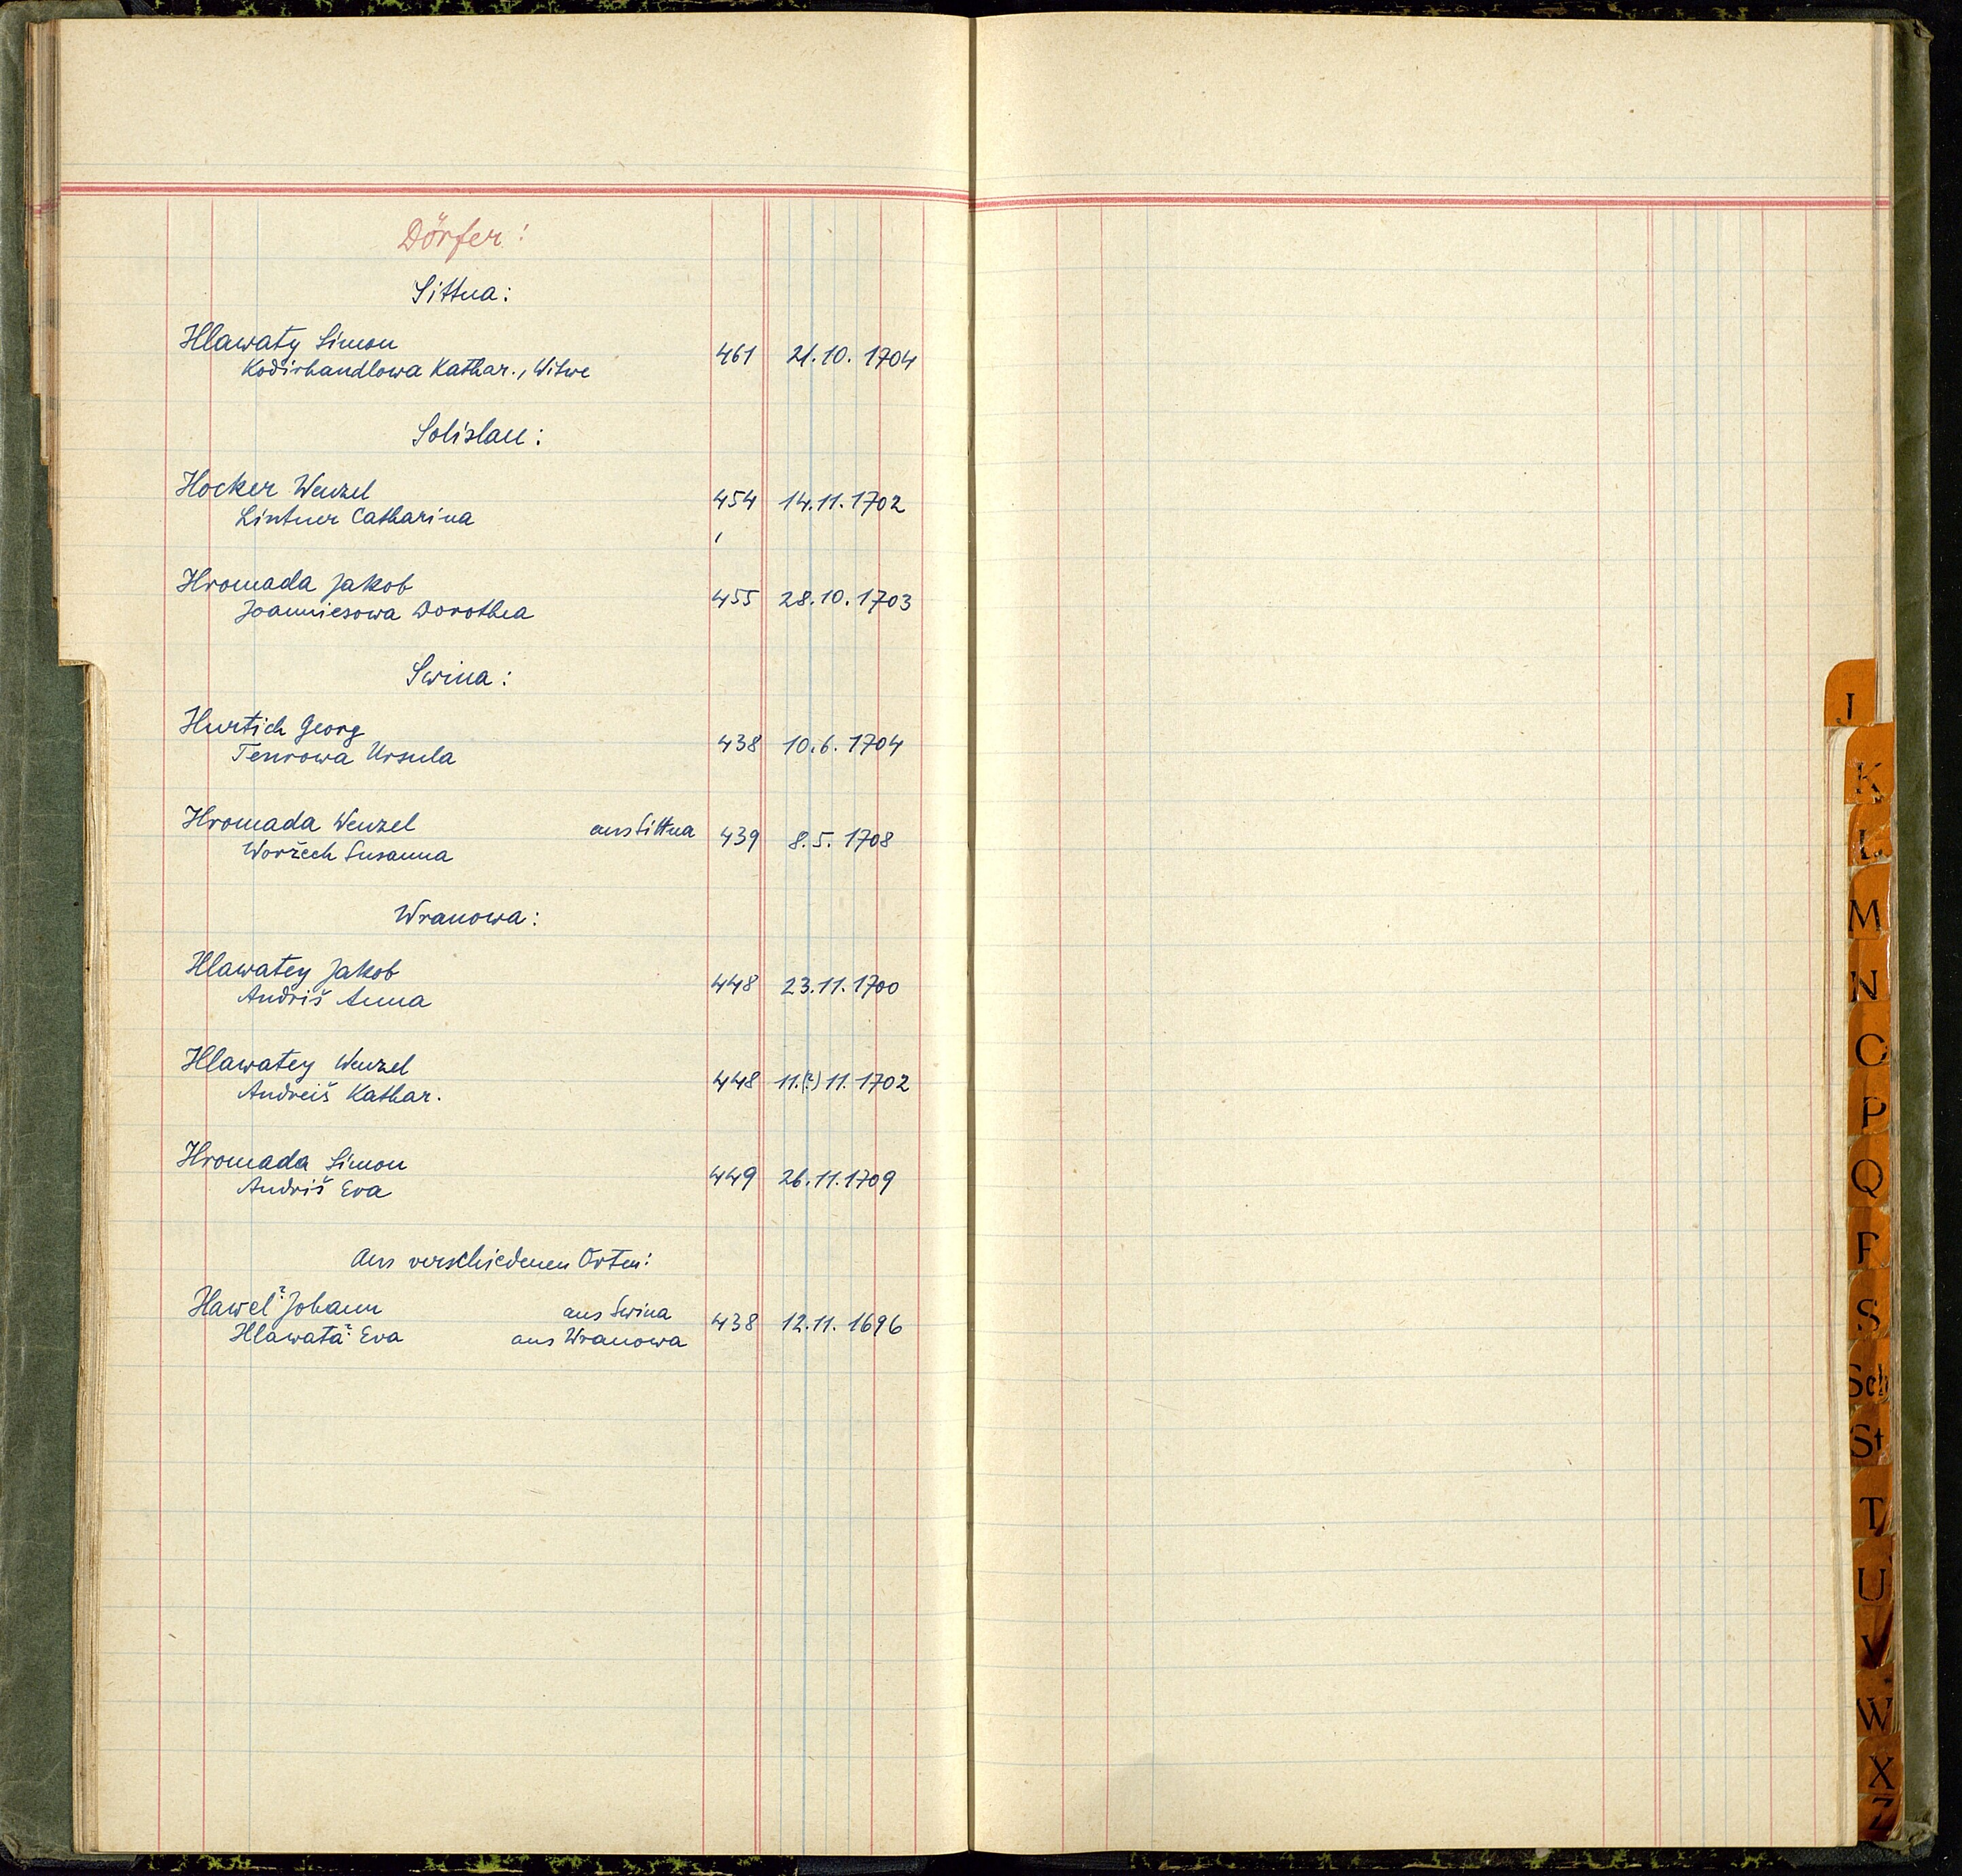 Dörfer:
Sittna:
Hlawaty Simon 461 21.10. 1704
Kodirhandlowa Kathar., Witwe
Solislau:
Hocker Wenzel 454 14.11.1702
Lintner Catharina
Hromada Jakob 455 28.10.1703
Joanniesowa Dorothea
Swina:
Hurtich Georg 438 10.6.1704
Tenrowa Ursula
Hromada Wenzel aus Sittna 439 8.5.1708
Woržech Susanna
Wranowa:
Hlawatey Jakob 448 23.11.1700
Andriš Anna
Hlawatey Wenzel 448 11.(?) 11.1702
Andreiš Kathar.
Hromada Simon 449 26.11.1709
Andriš Eva
Aus verschiedenen Orten:
Hawel? Johann aus Swina 438 12.11.1696
Hlawata? Eva aus Wranowa
J
K
L
M
N
O
P
Q
R
S
Sch
St
T
U
V
W
X
Z